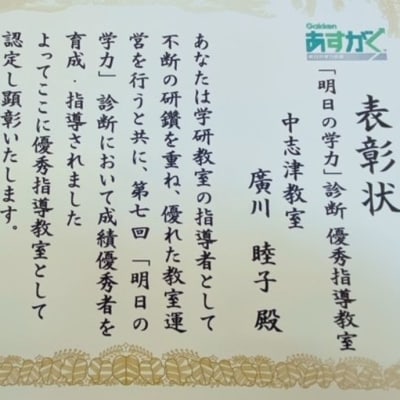 Gakken
あすがく
表彰状
「明日の学力」診断 優秀指導教室
中志津教室
廣川 睦子 殿
あなたは学研教室の指導者として
不断の研鑽を重ね、優れた教室運
営を行うと共に、第七回「明日の
学力」診断において成績優秀者を
育成・指導されました
よってここに優秀指導教室として
認定し顕彰いたします。